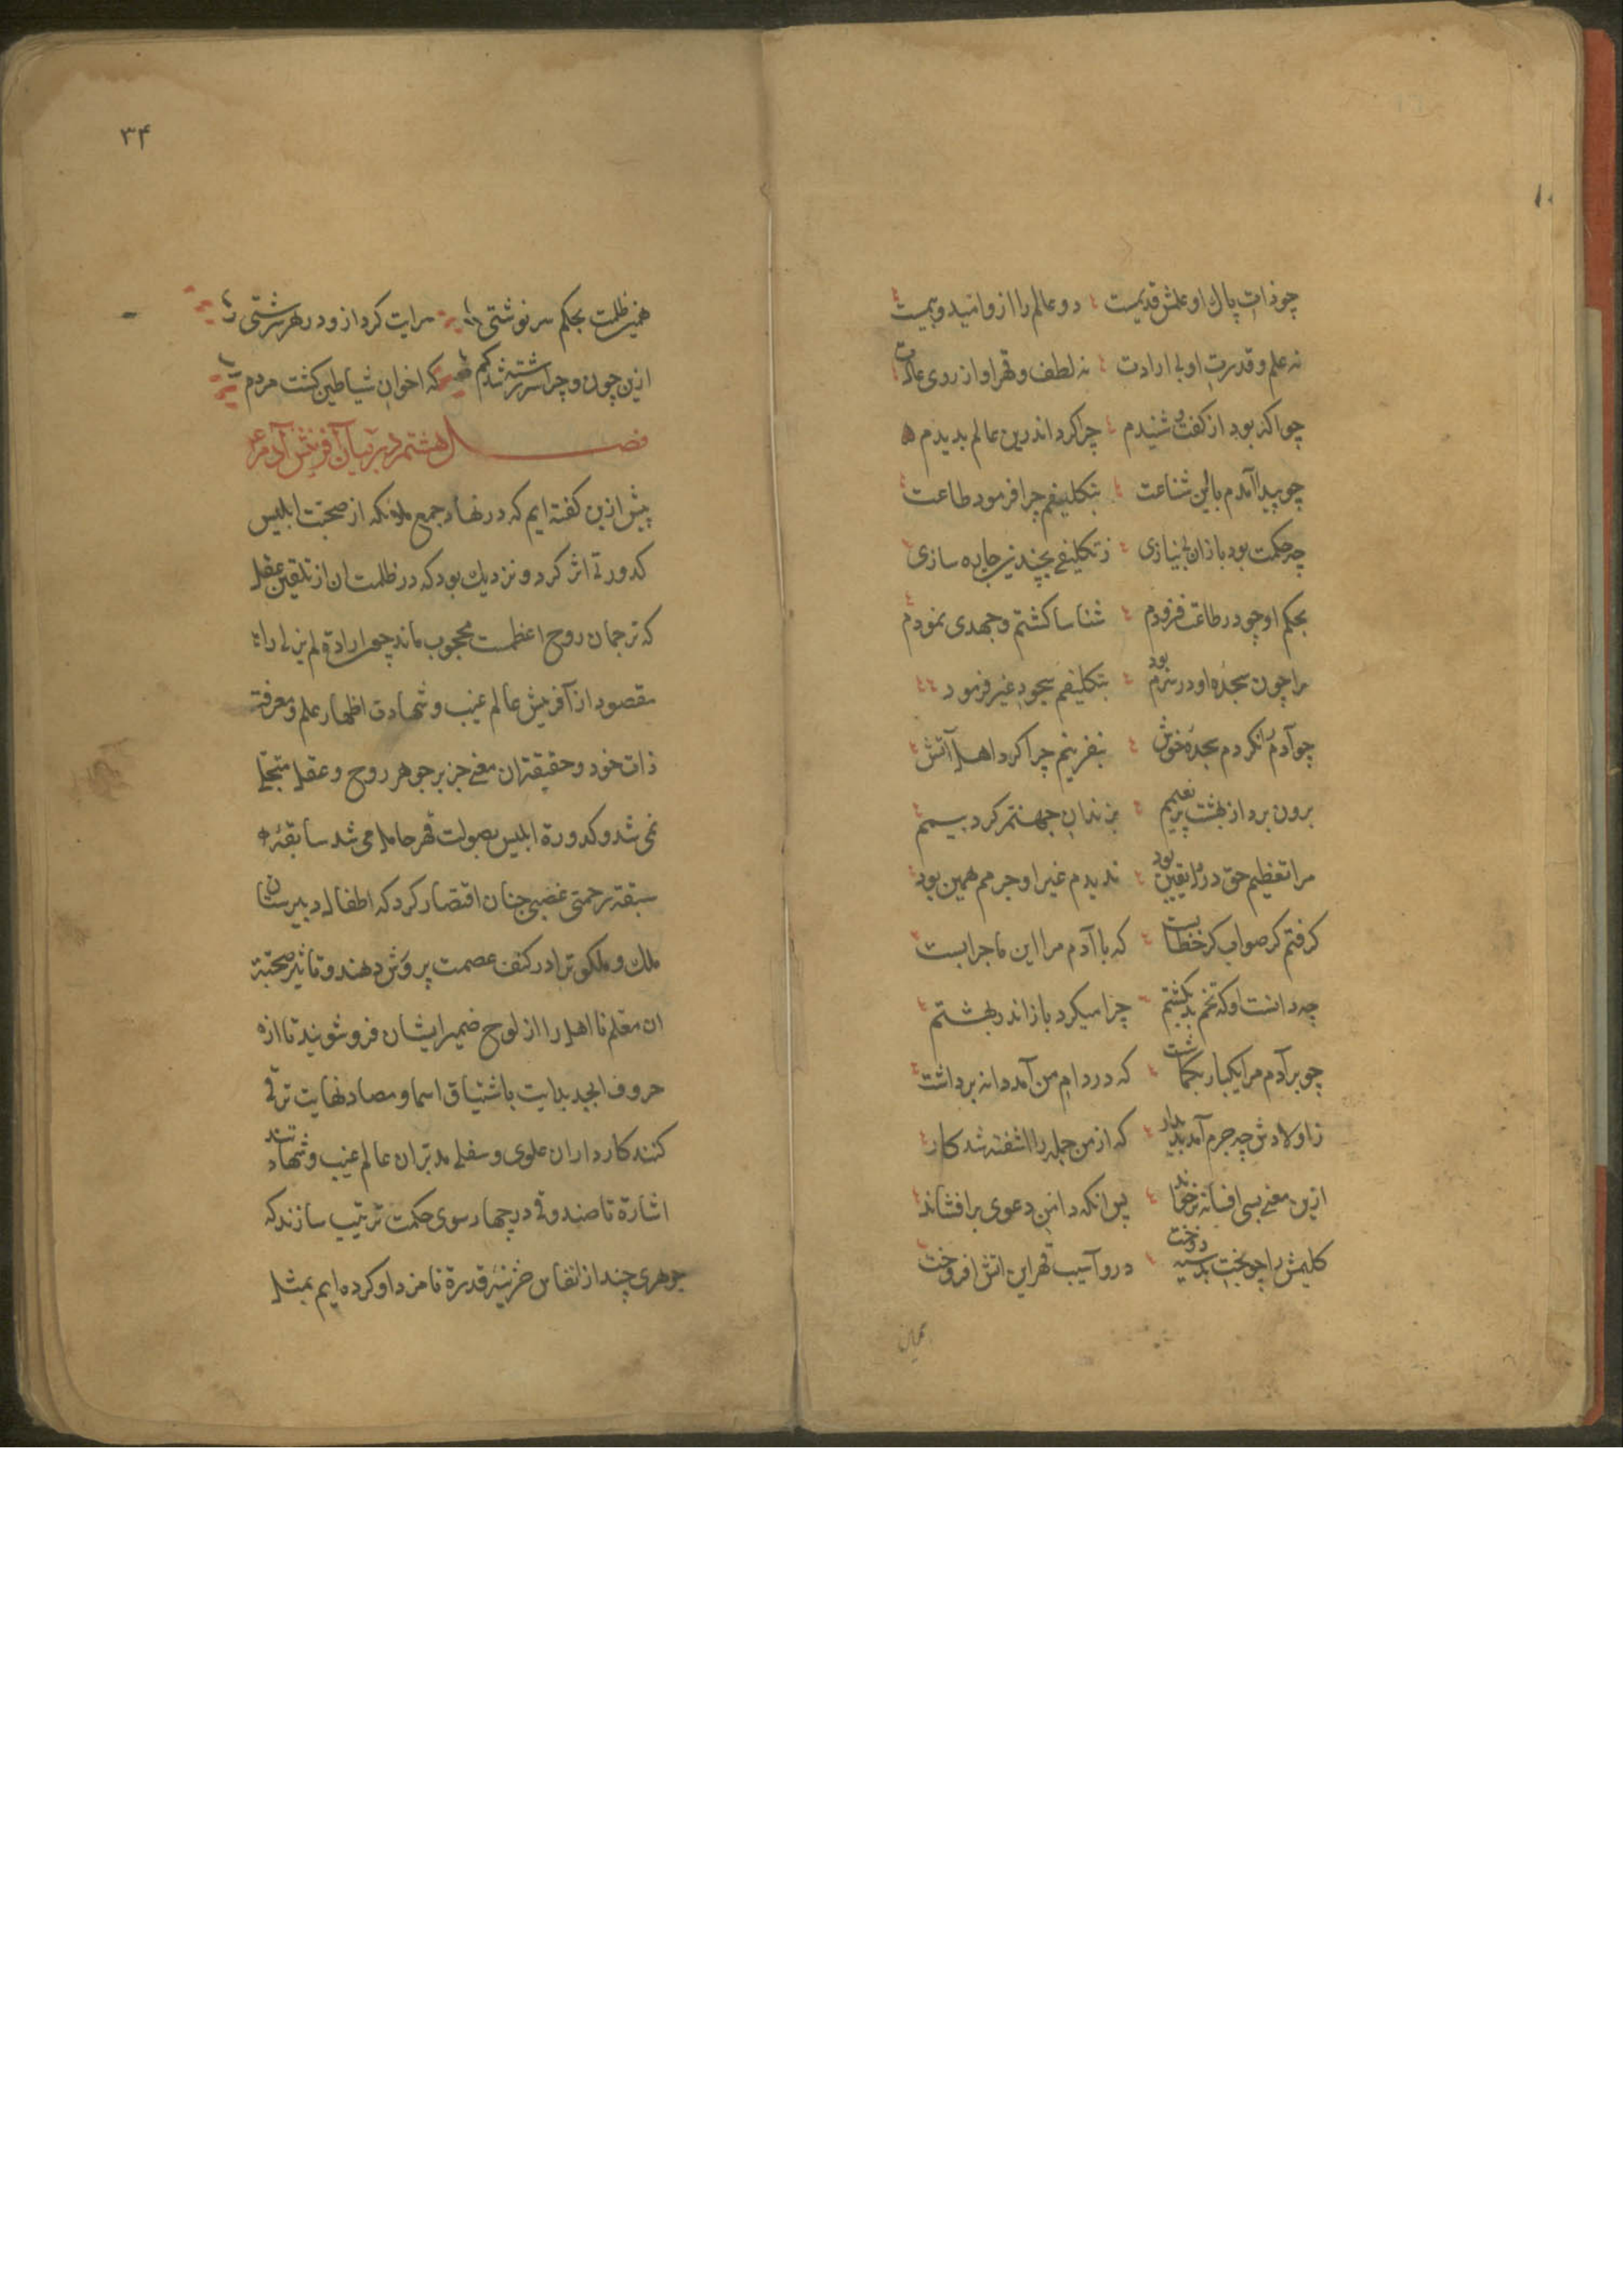 چو ذات پاك او علمش قدیمست دو عالم را ازو امید و بیمست
نه علم و قدرت او بی ارادت نه لطف و قهر او از روی عادت
چو آکه بود از کفت و شنیدم چرا کرد اندرین عالم بدیدم
چو پیدا آمدم با این شناعت بتکلیفم چرا فرمود طاعت
چه حکمت بود بازان بی نیازی ز تکلیفی بچندین چاره سازی
بحکم او چو در طاعت فزودم شناسا کشتم و جهدی نمودم
مرا چون سجدۀ او در سرم بود بتکلیفم سجود غیر فرمود
چو آدم را نکردم سجدۀ خوش بنفرینم چرا کرد اهل آتش
برون برد از بهشت پر نعیمم بزندان جهنم کرد بیمم
مرا تعظیم حق در دل یقین بود ندیدم غیر او جرمم همین بود
کرفتم کر صواب کر خطاییست که با آدم مرا این ماجراییست
چه دانست او که تخم بد بکشتم چرا میکرد باز اندر بهشتم
چو بر آدم مرا یکبار بکماشت که در دام من آمد دانه برداشت
ز اولادش چه جرم آمد پدیدار که از من جمله را اشفته شد کار
ازین معنی بسی افسانه بر خواند پس انکه دامن دعوی برافشاند
کلیمش را چو بخت بد سیه دوخت درو آسیب قهر این اتش افروخت
همین
۳۴
همین ظلمت بحکم سرنوشتی سرایت کرد ازو در هر سرشتی
ازین چون و چرا سررشته شد کم که اخوان شیاطین کشت مردم
فصل هشتم در بیان آفرینش آدم ع
پیش ازین کفته ایم که در نهاد جمع ملائکه از صحبت ابلیس
کدورتی اثر کرد و نزدیك بود که در ظلمت ان از تلقین عقل
که ترجمان روح اعظمست محجوب ماند چون ارادة لم یزلی را
مقصود از آفرینش عالم غیب و شهادت اظهار علم و معرفة
ذات خود و حقیقة ان معنی جز بر جوهر روح و عقل متجلی
نمی شد و کدورة ابلیس بصولت قهر حامل می شد سابقۀ
سبقت رحمتی غضبی چنان اقتضار کرد که اطفال دبیرستان
ملك و ملکوت را در کنف عصمت پرورش دهند و تاثیر صحبة
ان معلم نا اهل را از لوح ضمیر ایشان فرو شویند تا از
حروف ابجد بدایت باشتیاق اسما و مصاد نهایت ترقی
کنند کارداران علوی و سفلی مدبران عالم غیب و شهادتند
اشارة تا صندوقی در چهار سوی حکمت ترتیب سازند که
جوهری چند از نفایس خزینۀ قدرة نامزد او کرده ایم بمثل